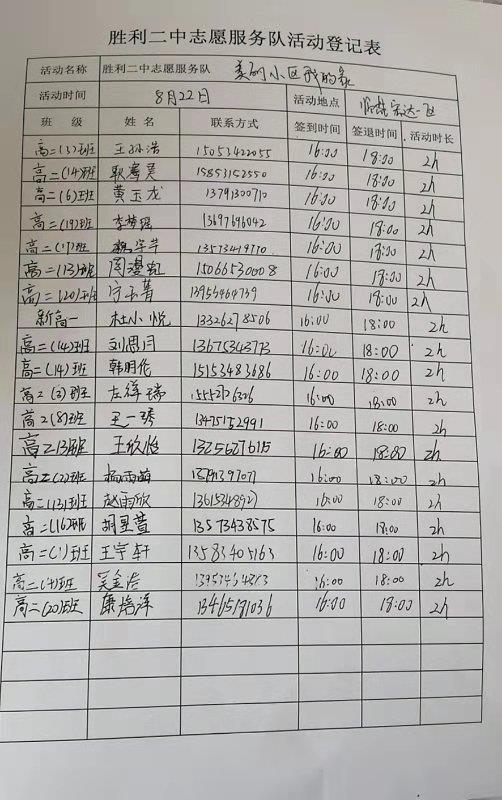 胜利二中志愿服务队活动登记表
活动名称 胜利二中志愿服务队 美的小区我的家
活动时间 8月22日 活动地点
班 级 姓 名 联系方式 签到时间 签退时间 活动时长
高二(3)班 15053422055 16:00 18:00 2h
高二(14)班 15853152550 16:00 18:00 2h
高二(6)班 黄玉龙 13791300710 16:00 18:00 2h
高二(19)班 李梦瑶 13697696042 16:00 18:00 2h
高二(17)班 13573419770 16:00 18:00 2h
高二(13)班 周漫虹 15066530008 16:00 18:00 2h
高二(20)班 13955464739 16:00 18:00 2h
新高一 杜小悦 13326278506 16:00 18:00 2h
高二(14)班 刘思月 13675343773 16:00 18:00 2h
高二(14)班 韩明伦 15153483686 16:00 18:00 2h
高2(3)班 左祥瑞 16:00 18:00 2h
高2(8)班 王一琇 13475152991 16:00 18:00 2h
高二13班 王欣怡 13256276115 16:00 18:00 2h
高二(2)班 杨雨萌 16:00 18:00 2h
高二(13)班 赵雨欣 16:00 18:00 2h
高二(16)班 胡星萱 13573438575 16:00 18:00 2h
高二(1)班 王宇轩 13583405163 16:00 18:00 2h
高二(4)班 16:00 18:00 2h
高二(20)班 康培洋 13465191036 16:00 18:00 2h